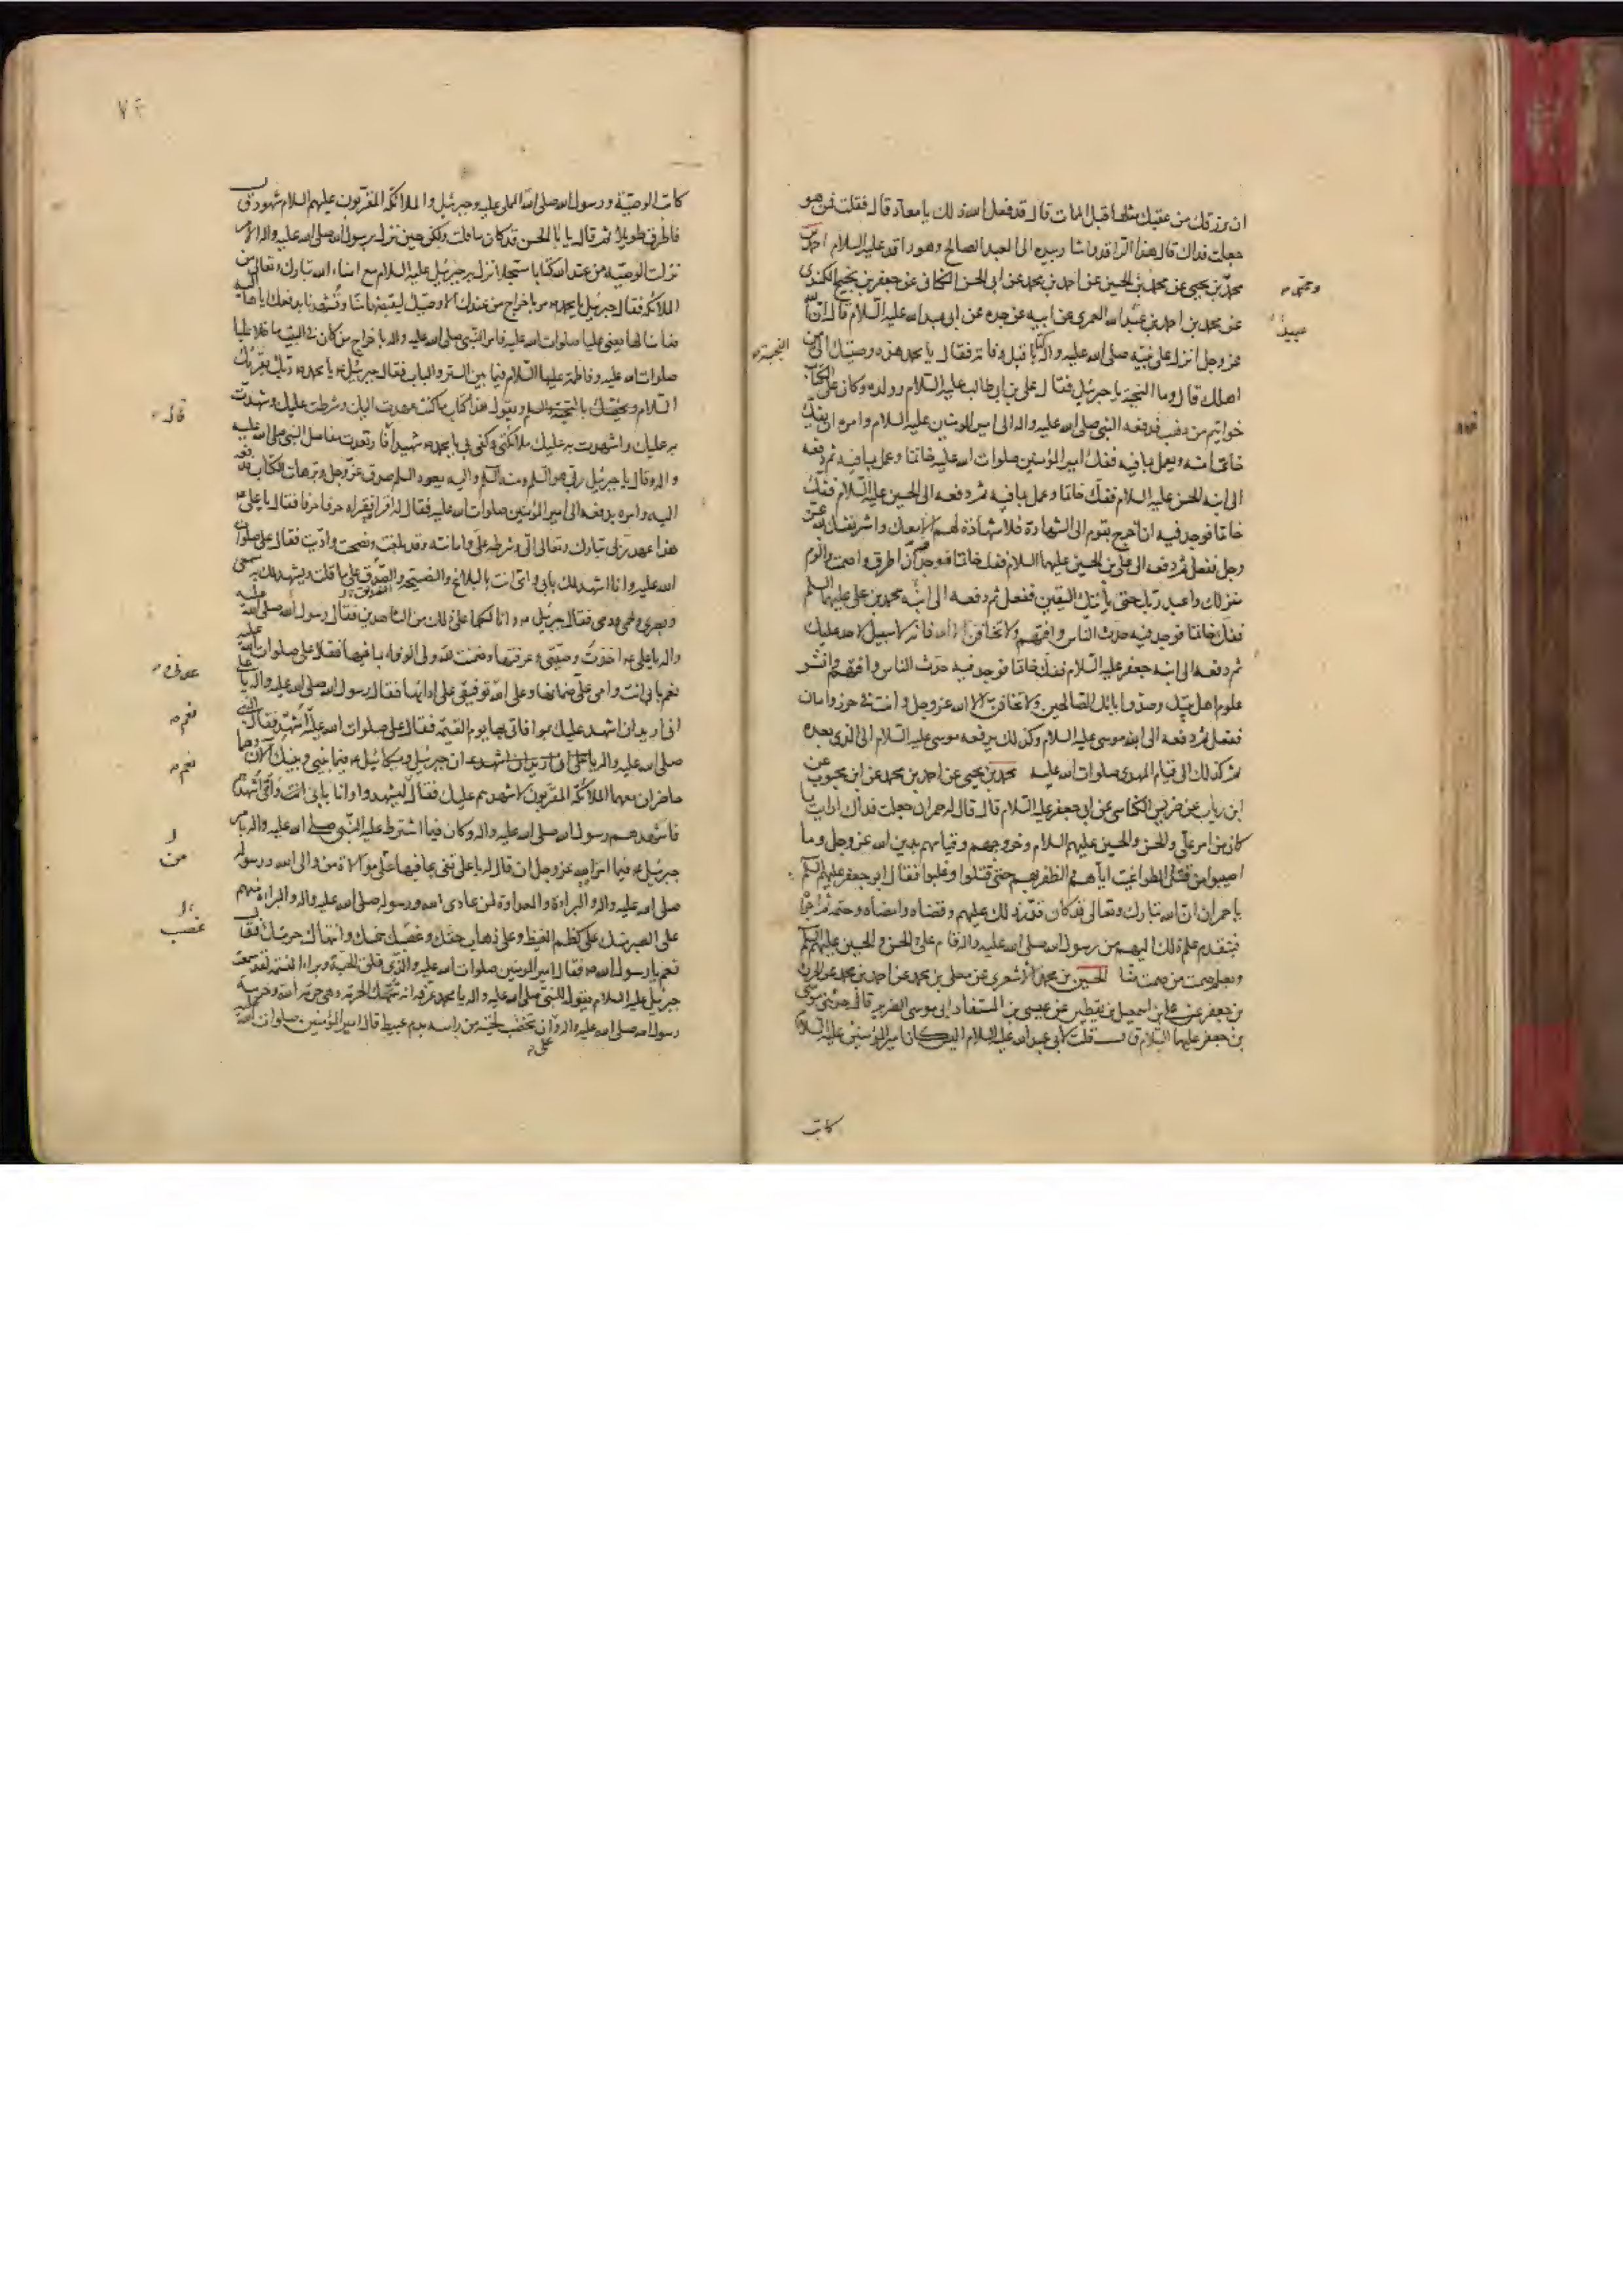 ان يرزقك من عقبك مثلها قبل الممات قال قد فعل الله ذلك يا معاذ قال فقلت فمن هو
جعلت فداك قال هذا الراقد واشار بيده الى العبد الصالح وهو راقد عليه السلام احمد بن
محمد بن يحيى عن محمد بن الحسين عن احمد بن محمد عن ابى الحسن الكنانى عن جعفر بن نجيح الكندى
عن محمد بن احمد بن عبد الله العمرى عن ابيه عن جده عن ابى عبد الله عليه السلام قال ان الله
عز وجل انزل على نبيه صلى الله عليه واله كتابا قبل وفاته فقال يا محمد هذه وصيتك الى
اهلك قال وما النجبة يا جبرئيل فقال على بن ابى طالب عليه السلام وولده وكان على الكتاب
خواتيم من ذهب فدفعه النبى صلى الله عليه واله الى امير المومنين عليه السلام وامره ان يفك
خاتما منه ويعمل بما فيه ففك امير المؤمنين صلوات الله عليه خاتما وعمل بما فيه ثم دفعه
الى ابنه الحسن عليه السلام ففك خاتما وعمل بما فيه ثم دفعه الى الحسين عليه السلام ففك
خاتما فوجد فيه ان اخرج بقوم الى الشهادة فلا شهادة لهم الا معك واشر نفسك لله عز
وجل ففعل ثم دفعه الى على بن الحسين عليهما السلام ففك خاتما فوجد فيه ان اطرق واصمت والزم
منزلك واعبد ربك حتى ياتيك اليقين ففعل ثم دفعه الى ابنه محمد بن على عليهما السلم
ففك خاتما فوجد فيه حدث الناس وافتهم ولا تخافن الا الله فانه لا سبيل لاحد عليك
ثم دفعه الى ابنه جعفر عليه السلام ففك خاتما فوجد فيه حدث الناس وافتهم وانشر
علوم اهل بيتك وصدق ابائك الصالحين ولا تخافن الا الله عز وجل وانت فى حرز وامان
ففعل ثم دفعه الى ابنه موسى عليه السلام وكذلك يدفعه موسى عليه السلام الى الذى بعده
ثم كذلك الى قيام المهدى صلوات الله عليه محمد بن يحيى عن احمد بن محمد عن ابن محبوب عن
ابن رياب عن ضريس الكناسى عن ابى جعفر عليه السلام قال قال له حمران جعلت فداك ارايت ما
كان من امر على والحسن والحسين عليهم السلام وخروجهم وقيامهم بدين الله عز وجل وما
اصيبوا من قتل الطواغيت اياهم والظفر بهم حتى قتلوا وغلبوا فقال ابو جعفر عليه السلم
يا حمران ان الله تبارك وتعالى قد كان قدر ذلك عليهم وقضاه وامضاه وحتمه ثم اجراه
فبتقدم علم ذلك اليهم من رسول الله صلى الله عليه واله قام على والحسن والحسين عليهم السلم
وبعلم صمت من صمت منا الحسين بن محمد الاشعرى عن معلى بن محمد عن احمد بن محمد عن الحرث
بن جعفر عن على بن اسمعيل بن يقطين عن عيسى بن المستفاد ابى موسى الضرير قال حدثنى موسى
بن جعفر عليهما السلام قال قلت لابى عبد الله عليه السلام اليس كان امير المؤمنين عليه السلام
عبيد
النجبة
كاتب
كاتب الوصية ورسول الله صلى الله عليه واله المملى عليه وجبرئيل والملائكة المقربون عليهم السلام شهود قال
فاطرق طويلا ثم قال يا ابا الحسن قد كان ما قلت ولكن حين نزل برسول الله صلى الله عليه واله الامر
نزلت الوصية من عند الله كتابا مسجلا نزل به جبرئيل عليه السلام مع امناء الله تبارك وتعالى من
الملائكة فقال جبرئيل يا محمد مر باخراج من عندك الا وصيك ليقبضها منا وتشهدنا بدفعك اياها اليه
ضامنا لها يعنى عليا صلوات الله عليه فامر النبى صلى الله عليه واله باخراج من كان فى البيت ما خلا عليا
صلوات الله عليه وفاطمة عليها السلام فيما بين الستر والباب فقال جبرئيل يا محمد ربك يقرئك
السلام ويقول هذا كتاب ما كنت عهدت اليك وشرطت عليك وشهدت
به عليك واشهدت به عليك ملائكتى وكفى بى يا محمد شهيدا فارتعدت مفاصل النبى صلى الله عليه
واله وقال يا جبرئيل ربى هو السلم ومنه السلم واليه يعود السلم صدق عز وجل وبر هات الكتاب فدفعه
اليه وامره بدفعه الى امير المؤمنين صلوات الله عليه فقال له اقراه فقراه حرفا حرفا فقال يا على
هذا عهد ربى تبارك وتعالى الى وشرطه على وامانته وقد بلغت ونصحت واديت فقال على صلوات
الله عليه وانا اشهد لك بابى وامى انت بالبلاغ والنصيحة والصدق على ما قلت ويشهد لك به سمعى
وبصرى ولحمى ودمى فقال جبرئيل وانا لكما على ذلك من الشاهدين فقال رسول الله صلى الله عليه
واله يا على اخذت وصيتى وعرفتها وضمنت لله ولى الوفاء بما فيها فقال على صلوات الله عليه
نعم بابى انت وامى على ضمانها وعلى الله توفيقى على ادائها فقال رسول الله صلى الله عليه واله يا على
انى اريد ان اشهد عليك بموافاتى بها يوم القيمة فقال على صلوات الله عليه اشهد فقال النبى
صلى الله عليه واله ان جبرئيل وميكائيل فيما بينى وبينك الان وهما
حاضران معهما الملائكة المقربون لاشهدهم عليك فقال ليشهدوا وانا بابى انت وامى اشهدهم
فاشهدهم رسول الله صلى الله عليه واله وكان فيما اشترط عليه النبى صلى الله عليه واله بامر
جبرئيل فيما امر الله عز وجل ان قال له يا على تفى بما فيها على موالاة من والى الله ورسوله
صلى الله عليه واله والبراءة والعداوة لمن عادى الله ورسوله صلى الله عليه واله والبراءة منهم
على الصبر منك على كظم الغيظ وعلى ذهاب حقك وغصبك خمسك وانتهاك حرمتك فقال
نعم يا رسول الله فقال امير المومنين صلوات الله عليه والذى فلق الحبة وبرا النسمة لقد سمعت
جبرئيل عليه السلام يقول للنبى صلى الله عليه واله يا محمد عرفه انه تنتهك الحرمة وهى حرمة الله وحرمة
رسول الله صلى الله عليه واله وعلى ان تخضب لحيته من راسه بدم عبيط قال امير المؤمنين صلوات الله عليه
قال
نعم
نعم
من
غصب